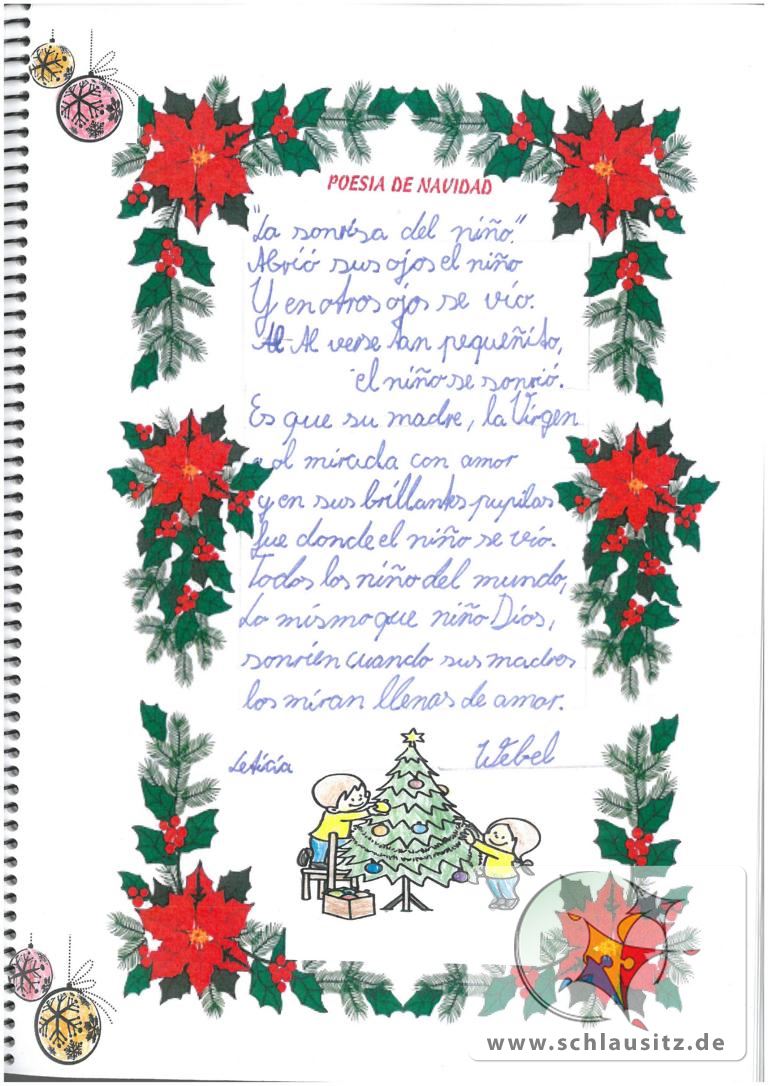 POESIA DE NAVIDAD
"La sonrisa del niño."
Abrió sus ojos el niño
Y en otros ojos se vío.
Al verse tan pequeñito,
el niño se sonrió.
Es que su madre, la Virgen
ol mirada con amor
y en sus brillantes pupilas
fue donde el niño se vío.
Todos los niño del mundo,
Lo mismo que niño Dios,
sonríen cuando sus madres
los miran llenas de amor.
Leticia Webel
www.schlausitz.de